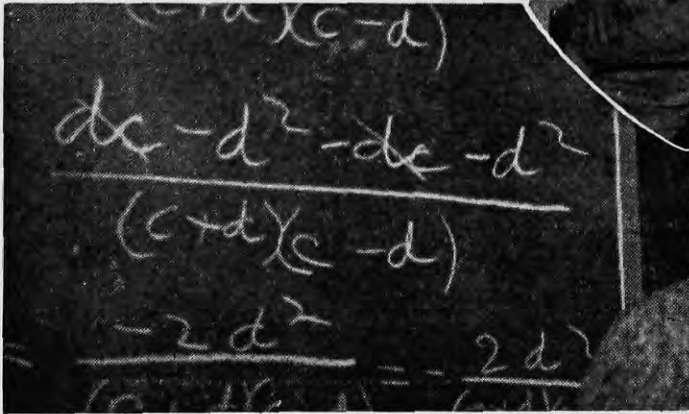 (c+d)(c-d)
dc - d² - dc - d²
(c+d)(c-d)
= -2d² = - 2d²
(c+d)(c-d)